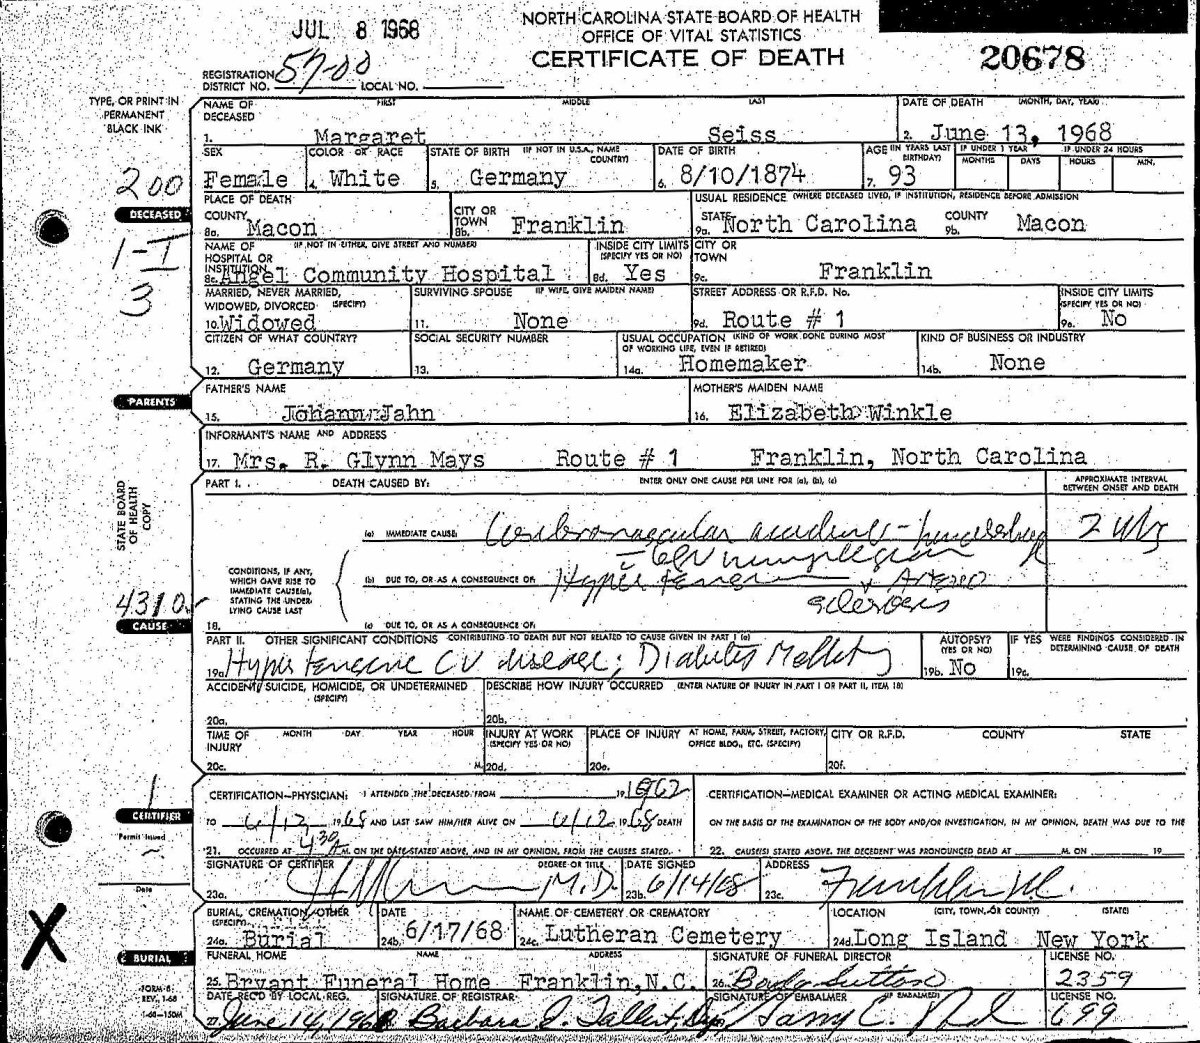 JUL 8 1968
NORTH CAROLINA STATE BOARD OF HEALTH
OFFICE OF VITAL STATISTICS
CERTIFICATE OF DEATH
20678
REGISTRATION DISTRICT NO. 57-00 LOCAL NO.
TYPE, OR PRINT IN PERMANENT BLACK INK
NAME OF DECEASED FIRST MIDDLE LAST DATE OF DEATH (MONTH, DAY, YEAR)
1. Margaret Seiss 2. June 13, 1968
SEX COLOR OR RACE STATE OF BIRTH (IF NOT IN U.S.A., NAME COUNTRY) DATE OF BIRTH AGE (IN YEARS LAST BIRTHDAY) IF UNDER 1 YEAR MONTHS DAYS IF UNDER 24 HOURS HOURS MIN.
Female 4. White 5. Germany 6. 8/10/1874 7. 93
200
DECEASED
1-I
3
PLACE OF DEATH USUAL RESIDENCE (WHERE DECEASED LIVED, IF INSTITUTION, RESIDENCE BEFORE ADMISSION
COUNTY CITY OR TOWN STATE COUNTY
8a. Macon 8b. Franklin 9a. North Carolina 9b. Macon
NAME OF HOSPITAL OR INSTITUTION (IF NOT IN EITHER, GIVE STREET AND NUMBER) INSIDE CITY LIMITS (SPECIFY YES OR NO) CITY OR TOWN
8c. Angel Community Hospital 8d. Yes 9c. Franklin
MARRIED, NEVER MARRIED, WIDOWED, DIVORCED (SPECIFY) SURVIVING SPOUSE (IF WIFE, GIVE MAIDEN NAME) STREET ADDRESS OR R.F.D. No. INSIDE CITY LIMITS (SPECIFY YES OR NO)
10. Widowed 11. None 9d. Route # 1 9e. No
CITIZEN OF WHAT COUNTRY? SOCIAL SECURITY NUMBER USUAL OCCUPATION (KIND OF WORK DONE DURING MOST OF WORKING LIFE, EVEN IF RETIRED) KIND OF BUSINESS OR INDUSTRY
12. Germany 13. 14a. Homemaker 14b. None
PARENTS
FATHER'S NAME MOTHER'S MAIDEN NAME
15. Johann Jahn 16. Elizabeth Winkle
INFORMANT'S NAME AND ADDRESS
17. Mrs. R. Glynn Mays Route # 1 Franklin, North Carolina
STATE BOARD OF HEALTH COPY
PART I. DEATH CAUSED BY: ENTER ONLY ONE CAUSE PER LINE FOR (a), (b), (c) APPROXIMATE INTERVAL BETWEEN ONSET AND DEATH
(a) IMMEDIATE CAUSE:
CONDITIONS, IF ANY, WHICH GAVE RISE TO IMMEDIATE CAUSE(a), STATING THE UNDERLYING CAUSE LAST
(b) DUE TO, OR AS A CONSEQUENCE OF:
sclerosis
4310
CAUSE
18. (c) DUE TO, OR AS A CONSEQUENCE OF:
PART II. OTHER SIGNIFICANT CONDITIONS CONTRIBUTING TO DEATH BUT NOT RELATED TO CAUSE GIVEN IN PART I (a) AUTOPSY? (YES OR NO) IF YES WERE FINDINGS CONSIDERED IN DETERMINING CAUSE OF DEATH
19a. CV disease; Diabetes 19b. No 19c.
ACCIDENT, SUICIDE, HOMICIDE, OR UNDETERMINED (SPECIFY) DESCRIBE HOW INJURY OCCURRED (ENTER NATURE OF INJURY IN PART I OR PART II, ITEM 18)
20a. 20b.
TIME OF INJURY MONTH DAY YEAR HOUR INJURY AT WORK (SPECIFY YES OR NO) PLACE OF INJURY AT HOME, FARM, STREET, FACTORY, OFFICE BLDG., ETC. (SPECIFY) CITY OR R.F.D. COUNTY STATE
20c. M. 20d. 20e. 20f.
CERTIFICATION—PHYSICIAN: I ATTENDED THE DECEASED FROM 1962 CERTIFICATION—MEDICAL EXAMINER OR ACTING MEDICAL EXAMINER:
CERTIFIER
TO 6/12 1968 AND LAST SAW HIM/HER ALIVE ON 6/12 1968 DEATH ON THE BASIS OF THE EXAMINATION OF THE BODY AND/OR INVESTIGATION, IN MY OPINION, DEATH WAS DUE TO THE
21. OCCURRED AT 430 A M. ON THE DATE STATED ABOVE, AND IN MY OPINION, FROM THE CAUSES STATED. 22. CAUSE(S) STATED ABOVE. THE DECEDENT WAS PRONOUNCED DEAD AT M. ON 19
Permit Issued
Date
SIGNATURE OF CERTIFIER DEGREE OR TITLE DATE SIGNED ADDRESS
23a. M.D. 23b. 6/14/68 23c. Franklin N.C.
X
BURIAL
BURIAL, CREMATION, OTHER (SPECIFY) DATE NAME OF CEMETERY OR CREMATORY LOCATION (CITY, TOWN, OR COUNTY) (STATE)
24a. Burial 24b. 6/17/68 24c. Lutheran Cemetery 24d. Long Island New York
FUNERAL HOME NAME ADDRESS SIGNATURE OF FUNERAL DIRECTOR LICENSE NO.
25. Bryant Funeral Home Franklin, N.C. 26. Sutton 2359
FORM 8 REV. 1-68 1-68-150M
DATE REC'D BY LOCAL REG. SIGNATURE OF REGISTRAR SIGNATURE OF EMBALMER (IF EMBALMED) LICENSE NO.
27. June 14, 1968 Barbara J. Tallent, Dep. 699